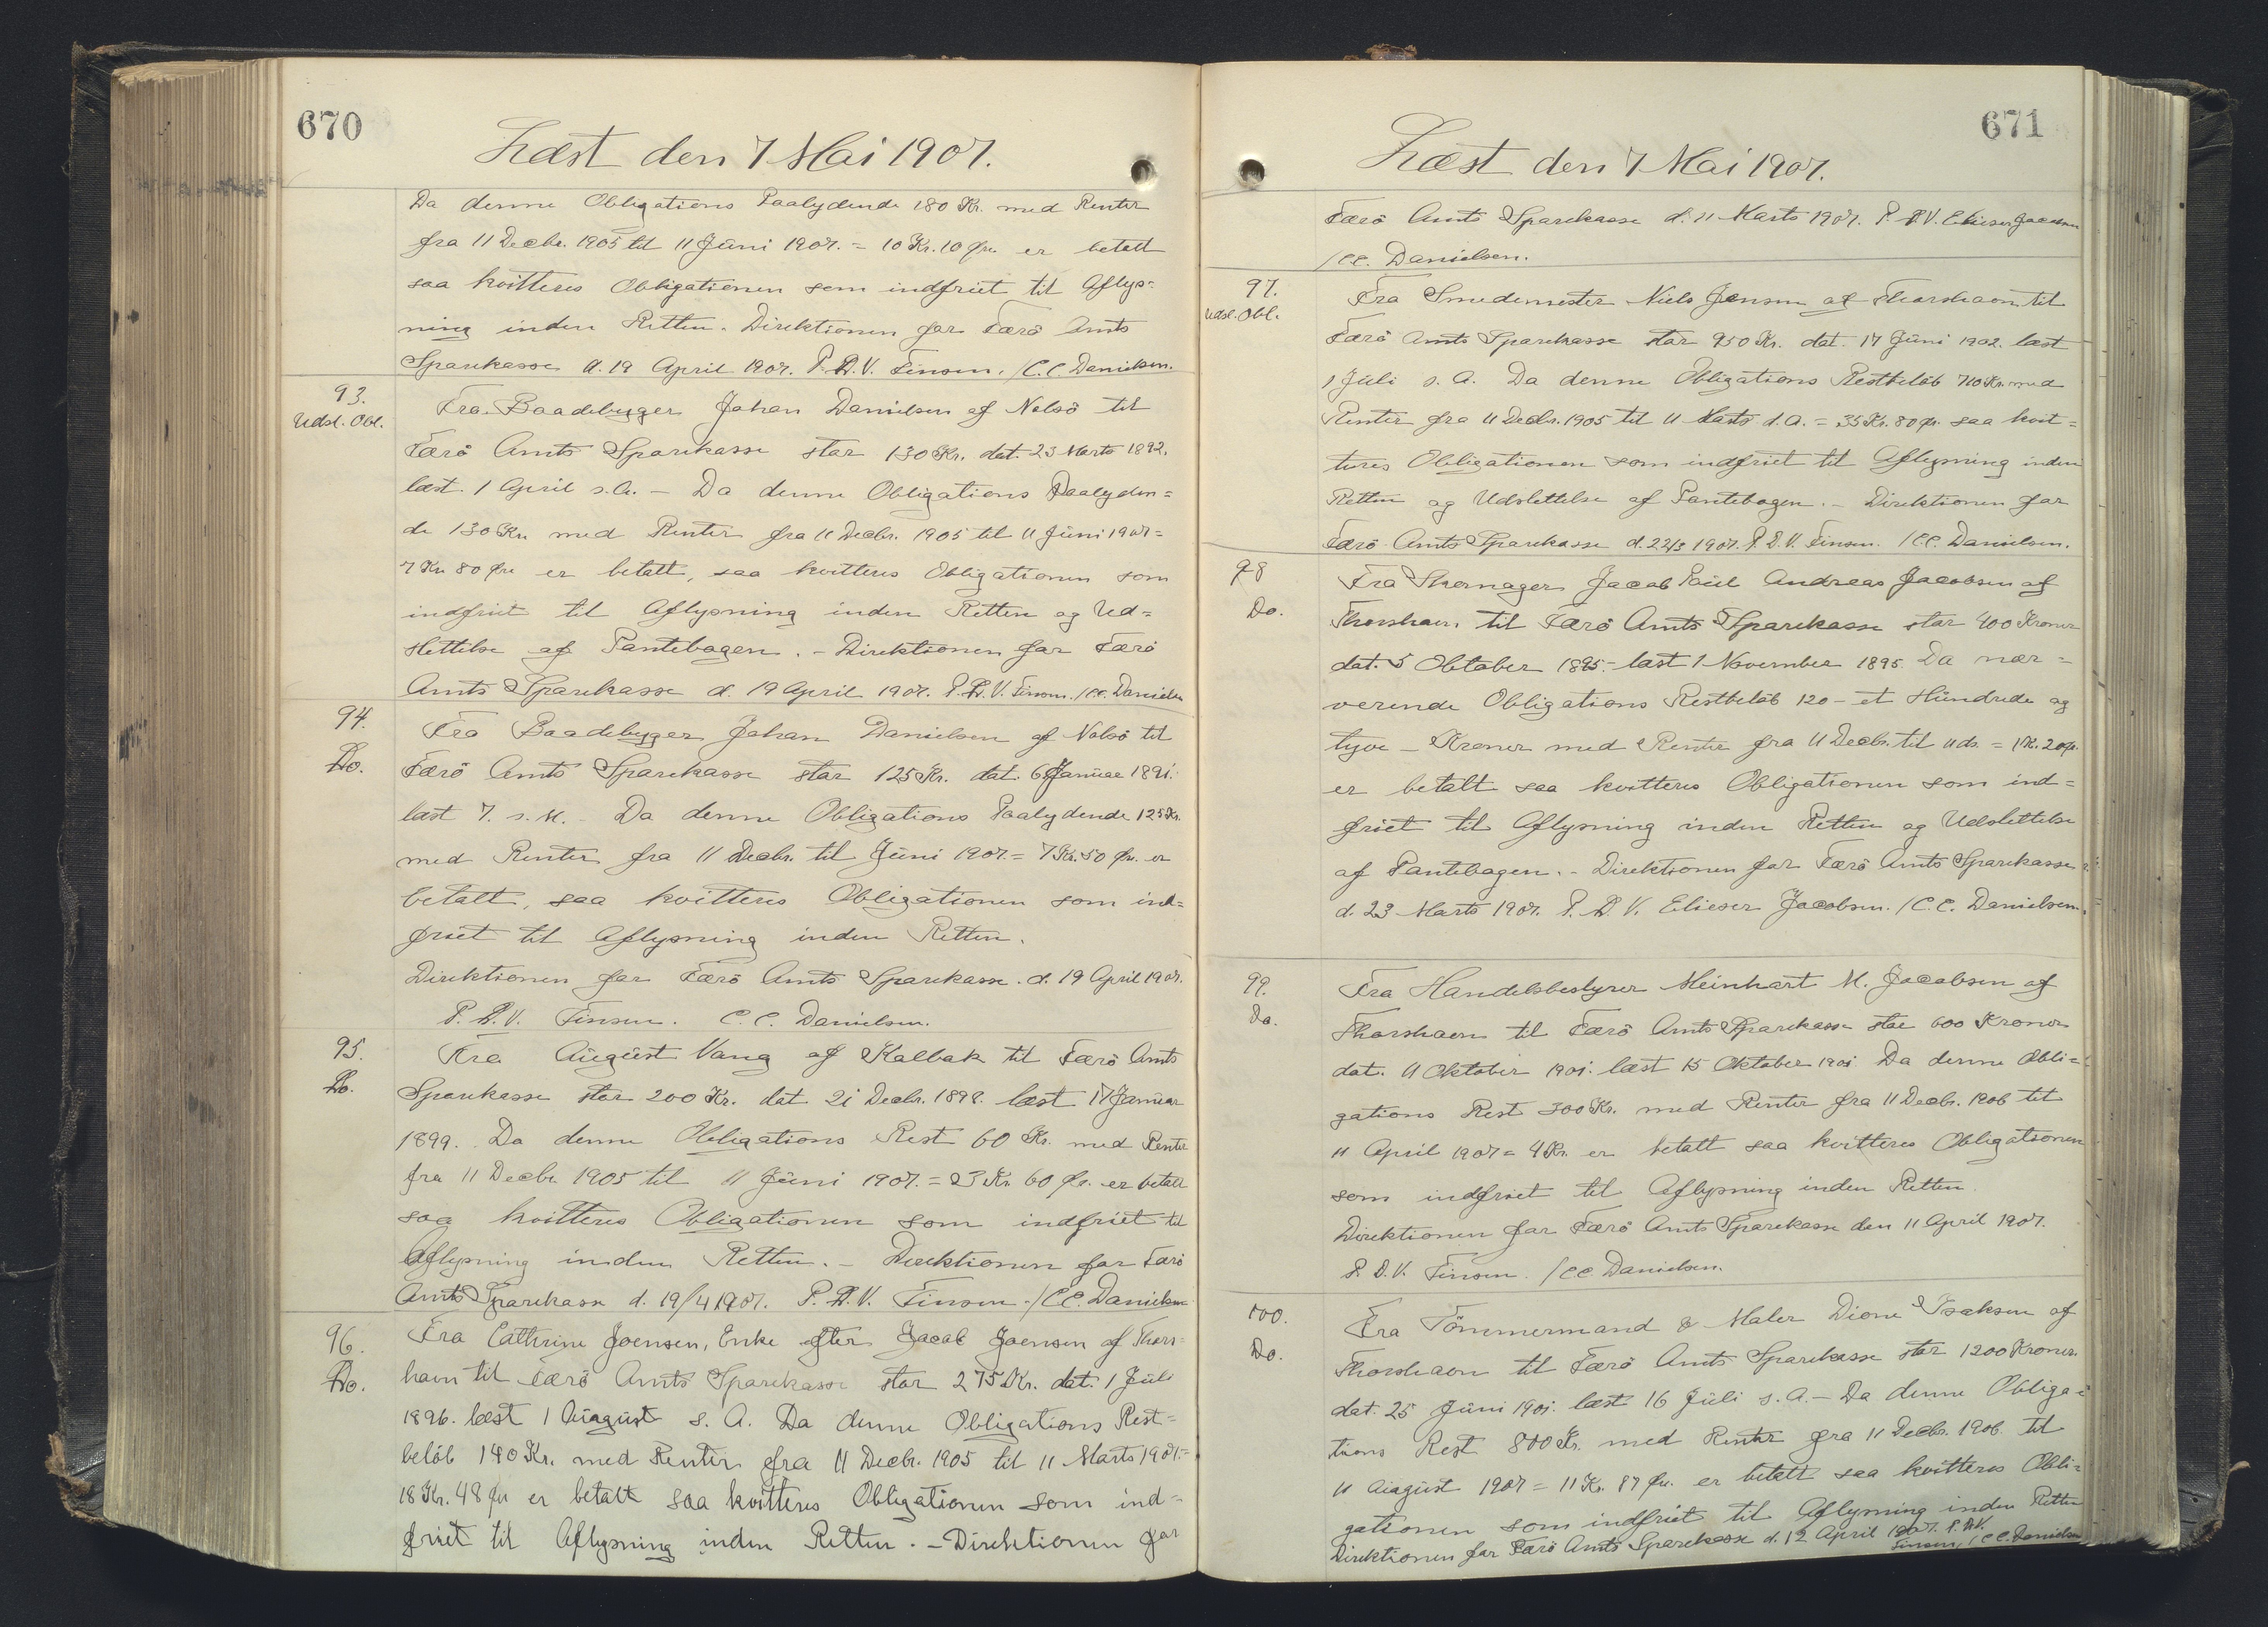 670
Læst den 7 Mai 1907.
Da denne Obligations Paalydende 180 Kr. med Renter
fra 11 Decbr. 1905 til 11 Juni 1907. = 10 Kr. 10 Øre er betalt
saa kvitteres Obligationen som indfriet til Aflys=
ning inden Retten. Direktionen for Færö Amts
Sparekasse d. 19 April 1907. P. D. V. Finsen. / C. C. Danielsen.
93.
Udsl. Obl.
Fra Baadebygger Johan Danielsen af Nolsö til
Færö Amts Sparekasse stor 130 Kr. dat. 23 Marts 1892.
læst. 1 April s. A. - Da denne Obligations Paalyden=
de 130 Kr. med Renter fra 11 Decbr. 1905 til 11 Juni 1907 =
7 Kr. 80 Øre er betalt, saa kvitteres Obligationen som
indfriet til Aflysning inden Retten og Ud=
slettelse af Pantebogen. - Direktionen for Færö
Amts Sparekasse d. 19 April 1907. P. D. V. Finsen. / C.C. Danielsen
94.
Do.
Fra Baadebygger Johan Danielsen af Nolsö til
Færö Amts Sparekasse stor 125 Kr. dat. 6 Januar 1891.
læst 7. s. M. - Da denne Obligations Paalydende 125 Kr.
med Renter fra 11 Decbr. til Juni 1907. = 7 Kr. 50 Øre. er
betalt, saa kvitteres Obligationen som ind=
friet til Aflysning inden Retten.
Direktionen for Færö Amts Sparekasse. d. 19 April 1907.
P. D. V. Finsen. C. C. Danielsen.
95.
Do.
Fra August Vang af Kalbak til Færö Amts
Sparekasse stor 200 Kr. dat 21 Decbr. 1898. læst 17 Januar
1899. Da denne Obligations Rest 60 Kr. med Renter
fra 11 Decbr 1905 til 11 Juni 1907. = 23 Kr 60 Øre. er betalt
saa kvitteres Obligationen som indfriet til
Aflysning inden Retten. - Direktionen for Færö
Amts Sparekasse d. 19/4 1907. P. D. V. Finsen - / C.C. Danielsen
96.
Do.
Fra Cathrine Joensen, Enke efter Jacob Joensen af Thors=
havn til Færö Amts Sparekasse stor 275 Kr. dat. 1 Juli
1896. læst 1 August s. A. Da denne Obligations Rest=
beløb 140 Kr. med Renter fra 11 Decbr. 1905 til 11 Marts 1907. =
18 Kr. 48 Øre er betalt saa kvitteres Obligationen som ind=
friet til Aflysning inden Retten. - Direktionen for
671
Læst den 7 Mai 1907.
Færö Amts Sparekasse d. 11 Marts 1907. P. D. V. Elieser Jacobsen
/ C.C. Danielsen.
97.
Udsl. Obl.
Fra Smedemester Niels Jensen af Thorshavn til
Færö Amts Sparekasse stor 950 Kr. dat. 17 Juni 1902. læst
1 Juli s. A. Da denne Obligations Restbeløb 710 Kr. med
Renter fra 11 Decbr. 1905 til 11 Marts d. A. = 35 Kr. 80 Øre. saa kvit=
teres Obligationen som indfriet til Aflysning inden
Retten og Udslettelse af Pantebogen. - Direktionen for
Færö Amts Sparekasse d. 22/3 1907. P. D. V. Finsen. / C.C. Danielsen.
98
Do.
Fra Skomager Jacob Paul Andreas Jacobsen af
Thorshavn til Færö Amts Sparekasse stor 400 Kroner
dat. 5 Oktober 1895. - læst 1 November 1895. Da nær=
værende Obligations Restbeløb 120 - et Hundrede og
tyve - Kroner med Renter fra 11 Decbr. til 11 ds. = 1 Kr. 20 Ø.
er betalt saa kvitteres Obligationen som ind=
friet til Aflysning inden Retten og Udslettelse
af Pantebogen. - Direktionen for Færö Amts Sparekasse
d. 23 Marts 1907. P. D. V. Elieser Jacobsen. / C. C. Danielsen.
99.
Do.
Fra Handelsbestyrer Meinhart M. Jacobsen af
Thorshavn til Færö Amts Sparekasse stor 600 Kroner
dat. 11 Oktober 1901. læst 15 Oktober 1901 Da denne Obli=
gations Rest 300 Kr. med Renter fra 11 Decbr. 1906 til
11 April 1907 = 4 Kr. er betalt saa kvitteres Obligationen
som indfriet til Aflysning inden Retten.
Direktionen for Færö Amts Sparekasse den 11 April 1907.
P. D. V. Finsen. / C.C. Danielsen.
100.
Do.
Fra Tömmermand & Maler Dione Isaksen af
Thorshavn til Færö Amts Sparekasse stor 1200 Kroner.
dat. 25 Juni 1901. læst 16 Juli s. A. - Da denne Obliga=
tions Rest 800 Kr. med Renter fra 11 Decbr. 1906. til
11 August 1907 = 11 Kr. 87 Øre. er betalt saa kvitteres Obli=
gationen som indfriet til Aflysning inden Retten
Direktionen for Færö Amts Sparekasse d. 12 April 1907. P. D. V.
Finsen, / C.C. Danielsen